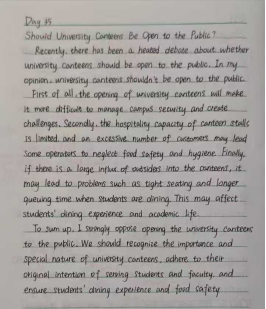 Day 35
Should University Canteens Be Open to the Public?
Recently, there has been a heated debate about whether
university canteens should be open to the public. In my
opinion, university canteens shouldn't be open to the public.
First of all, the opening of university canteens will make
it more difficult to manage campus security and create
challenges. Secondly, the hospitality capacity of canteen stalls
is limited and an excessive number of customers may lead
some operators to neglect food safety and hygiene. Finally,
if there is a large influx of outsiders into the canteens, it
may lead to problems such as tight seating and longer
queuing time when students are dining. This may affect
students' dining experience and academic life.
To sum up, I strongly oppose opening the university canteens
to the public. We should recognize the importance and
special nature of university canteens, adhere to their
original intention of serving students and faculty, and
ensure students' dining experience and food safety